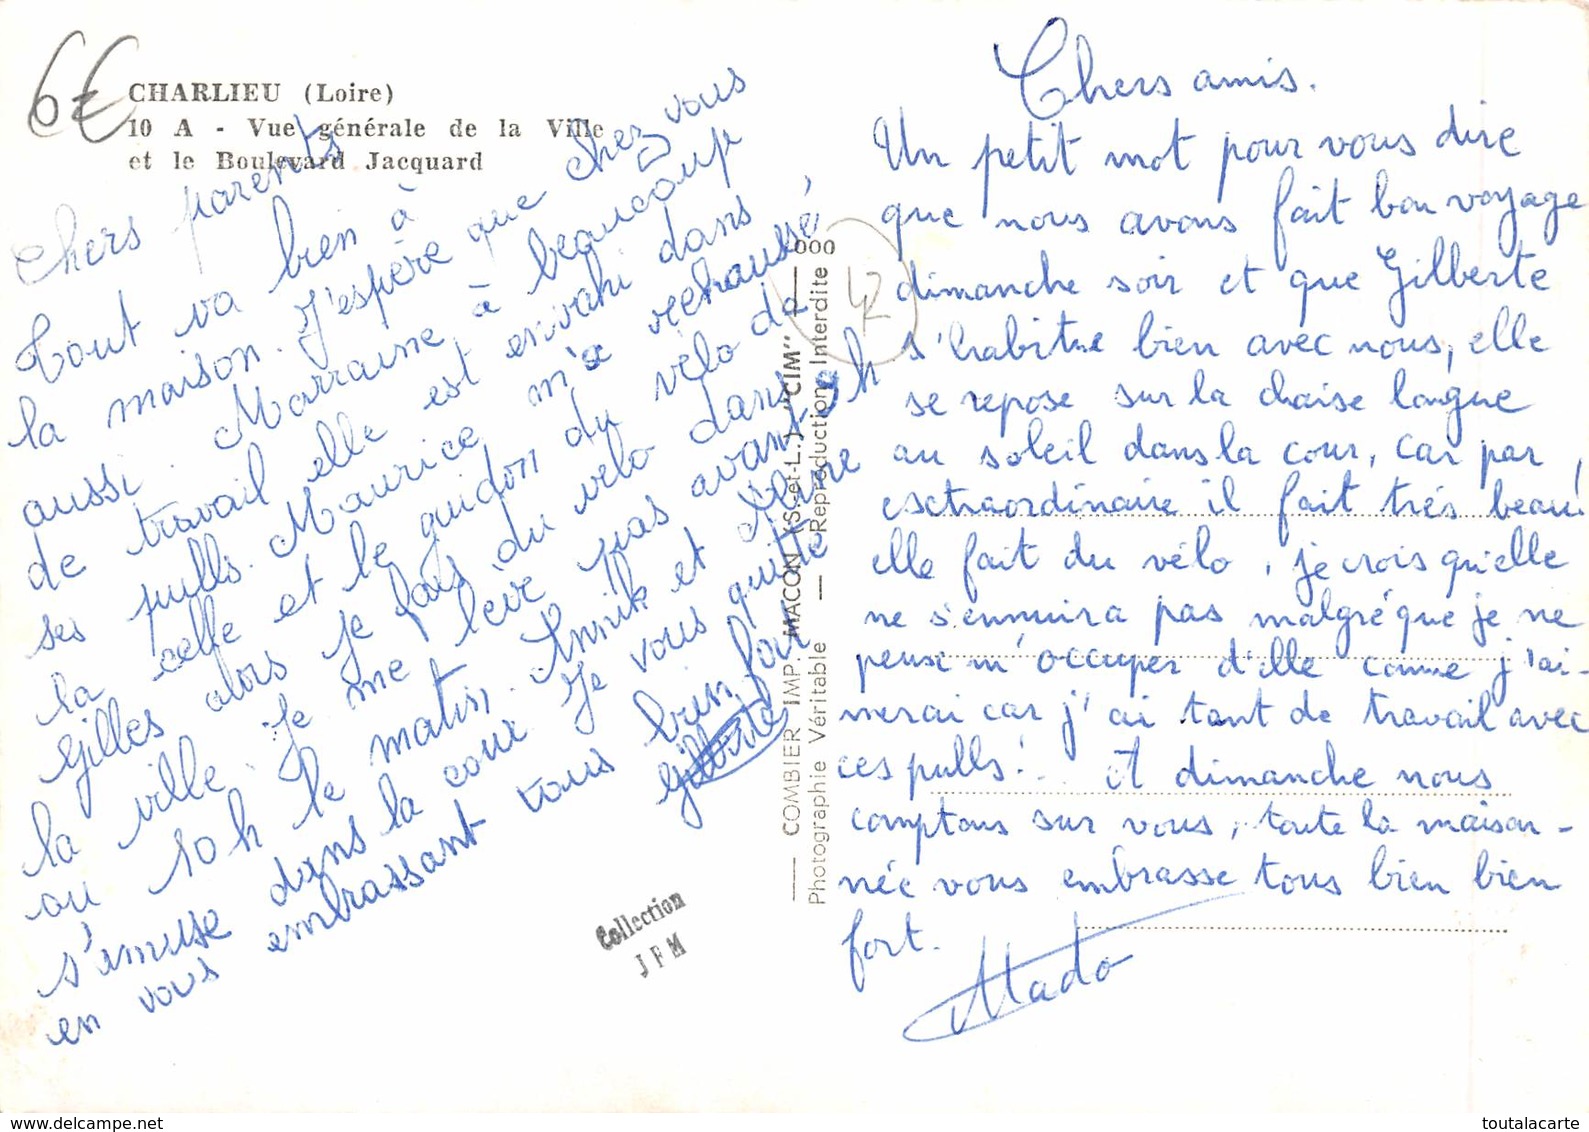 6€
CHARLIEU (Loire)
10 A - Vue générale de la Ville
et le Boulevard Jacquard
Chers parents
Tout va bien à
la maison. J'espère que chez vous
aussi. Marraine à beaucoup
de travail elle est envahi dans
ses pulls. Maurice m'a rehaussé
la celle et le guidon du vélo de
Gilles alors je fais du vélo dans
la ville. Je me lève pas avant 9h
ou 10h le matin. Annik et
s'amuse dans la cour. Je vous quitte
en vous embrassant tous bien fort
Gilberte
Collection
J F M
COMBIER IMP. MACON (S.-et-L.) "CIM"
Photographie Véritable — Reproduction Interdite
Chers amis.
Un petit mot pour vous dire
que nous avons fait bon voyage
dimanche soir et que Gilberte
s'habitue bien avec nous, elle
se repose sur la chaise longue
au soleil dans la cour, car par
extraordinaire il fait très beau!
elle fait du vélo, je crois qu'elle
ne s'ennuira pas malgré que je ne
peux m'occuper d'elle comme j'ai-
merai car j'ai tant de travail avec
ces pulls! A dimanche nous
comptons sur vous, toute la maison-
née vous embrasse tous bien bien
fort.
Mado
toutalacarte